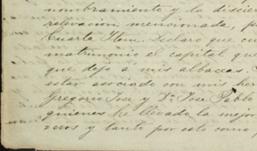 nombramiento y la discier
relacion mencionada, p
Cuarta Item: Declaro que con
matrimonio el capital que
que dejo a mis albaceas.
estar asociado con mis her
Gregorio José y Dn José Pablo
quienes he llevado la mejor
mos y tanto por esto como p